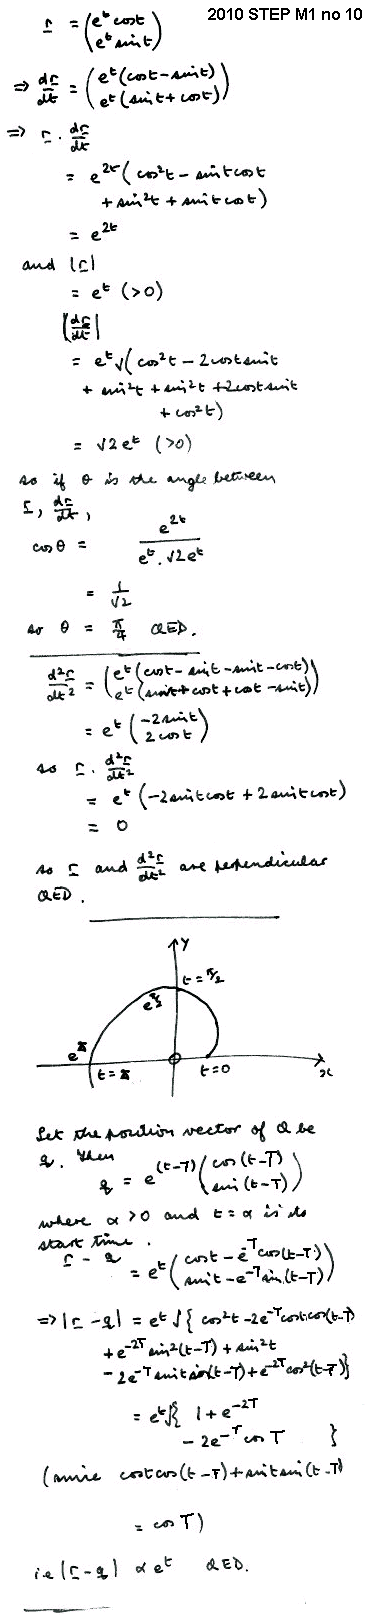 2010 STEP M1 no 10
r = (e^t cost
e^t sint)
⇒ dr/dt = (e^t(cost - sint)
e^t(sint + cost))
⇒ r . dr/dt
= e^2t (cos²t - sintcost
+ sin²t + sintcost)
= e^2t
and |r|
= e^t (>0)
|dr/dt|
= e^t √(cos²t - 2costsint
+ sin²t + sin²t + 2costsint
+ cos²t)
= √2 e^t (>0)
so if θ is the angle between
r, dr/dt,
cosθ = e^2t / e^t . √2e^t
= 1/√2
so θ = π/4 QED.
d²r/dt² = (e^t(cost - sint - sint - cost)
e^t(sint + cost + cost - sint))
= e^t (-2sint
2cost)
so r . d²r/dt²
= e^t (-2sintcost + 2sintcost)
= 0
so r and d²r/dt² are perpendicular
QED.
y
t = π/2
e^π/2
e^π
t = π
O
t = 0
x
Let the position vector of Q be
q. Then
q = e^(t-T) (cos(t-T)
sin(t-T))
where α > 0 and t = α is its
start time.
r - q
= e^t (cost - e^-T cos(t-T)
sint - e^-T sin(t-T))
⇒ |r - q| = e^t √{cos²t - 2e^-T costcos(t-T)
+ e^-2T sin²(t-T) + sin²t
- 2e^-T sintsin(t-T) + e^-2T cos²(t-T)}
= e^t √{ 1 + e^-2T
- 2e^-T cosT }
(since costcos(t-T) + sintsin(t-T)
= cosT)
ie |r - q| ∝ e^t QED.